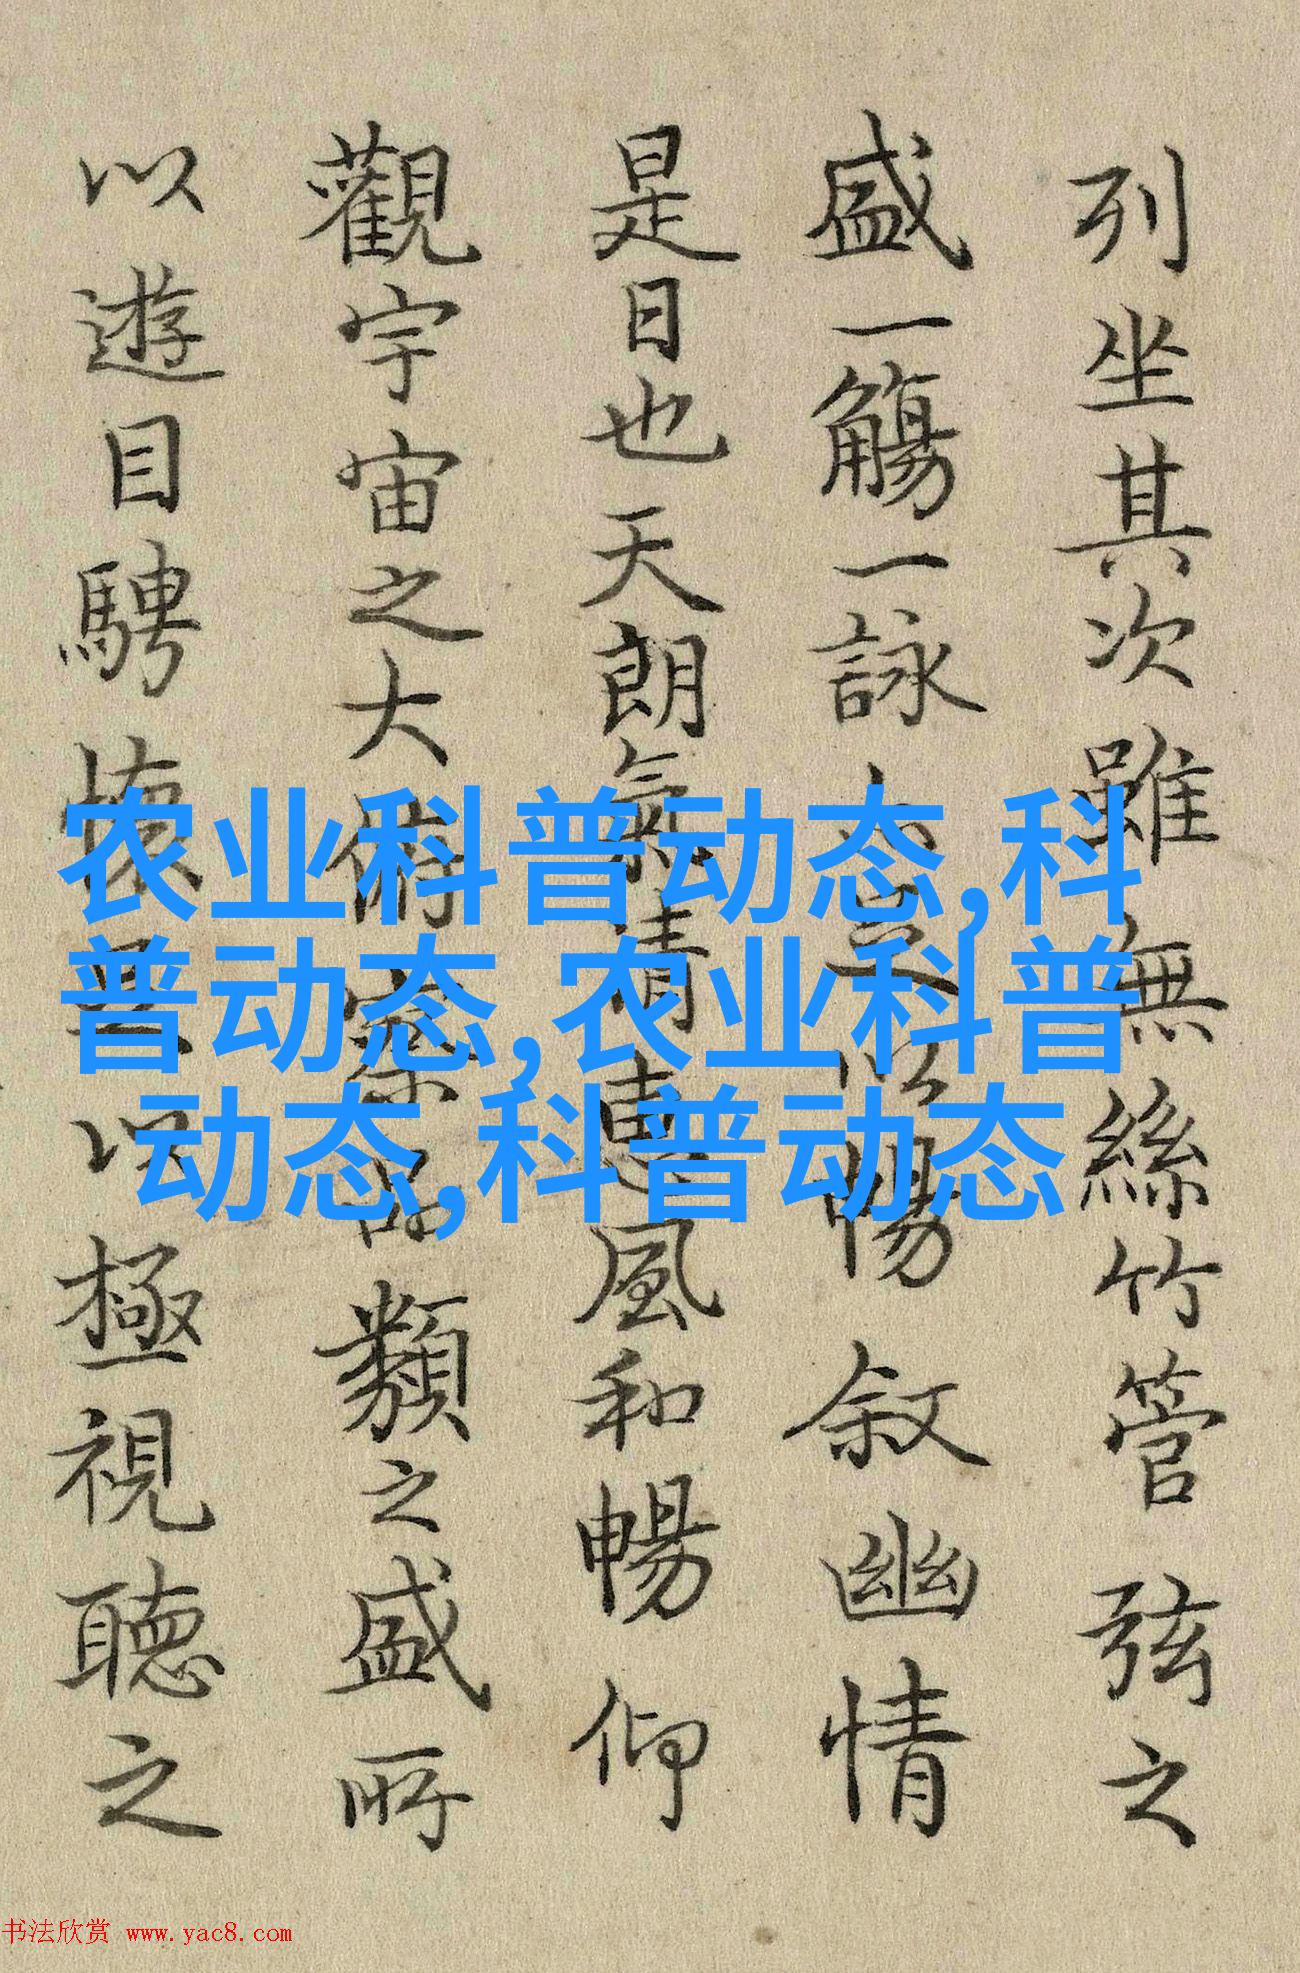 列坐其次雖無絲竹管弦之
盛一觴一詠亦足以暢叙幽情
是日也天朗氣清惠風和暢仰
觀宇宙之大俯察品類之盛所
以遊目騁懷足以極視聽之
农业科普动态,科
普动态,农业科普
动态,科普动态
书法欣赏 www.yac8.com